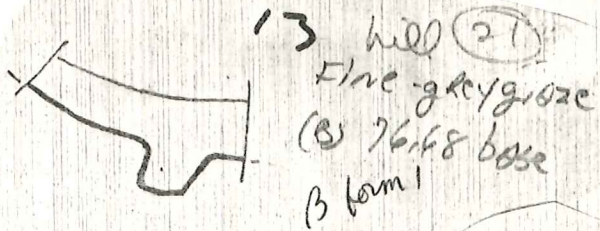 13 hill 21
Fine-greyglaze
(B) 76,68 base
B form 1